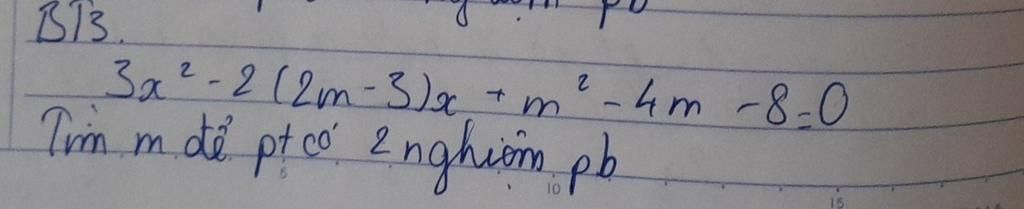 pb
BT3.
3x² - 2(2m - 3)x + m² - 4m - 8 = 0
Tìm m để pt có 2 nghiệm pb
5 10 15